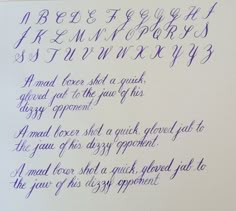 A B C D E F G G G G H I
J K L M N N O P Q R L S
S S T U V W W X X Y Y Z
A mad boxer shot a quick,
gloved jab to the jaw of his
dizzy opponent.
A mad boxer shot a quick, gloved jab to
the jaw of his dizzy opponent.
A mad boxer shot a quick, gloved jab to
the jaw of his dizzy opponent